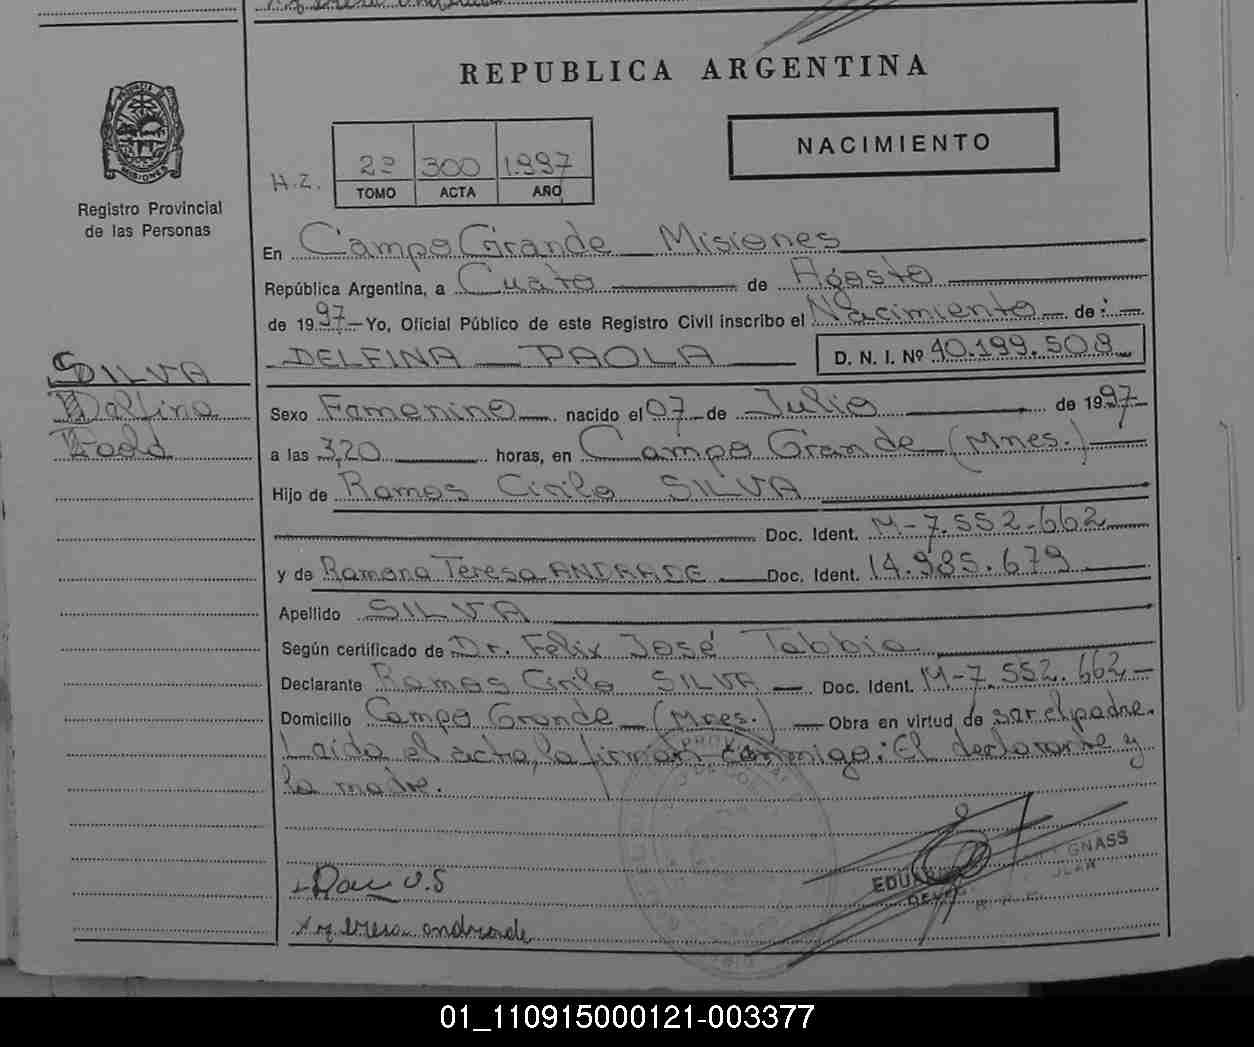 REPUBLICA ARGENTINA
NACIMIENTO
H.Z.
2º 300 1.997
TOMO ACTA AÑO
PROVINCIA DE MISIONES
Registro Provincial
de las Personas
En Campo Grande Misiones
República Argentina, a Cuato de Agosto
de 1997 Yo, Oficial Público de este Registro Civil inscribo el Nacimiento de:
DELFINA PAOLA D. N. I. Nº 40.199.508
SILVA
Delfina
Paola
Sexo Femenino nacido el 07 de Julio de 1997
a las 3,20 horas, en Campo Grande (Mnes.)
Hijo de Ramos Cirilo SILVA
Doc. Ident. M-7.552.662
y de Ramona Teresa ANDRADE Doc. Ident. 14.985.679
Apellido SILVA
Según certificado de Dr. Felix José Tabbia
Declarante Ramos Cirilo SILVA Doc. Ident. M-7.552.662
Domicilio Campo Grande (Mnes.) Obra en virtud de ser el padre.
Leída el acta, la firman conmigo: El declarante y
la madre.
GNASS
01_110915000121-003377